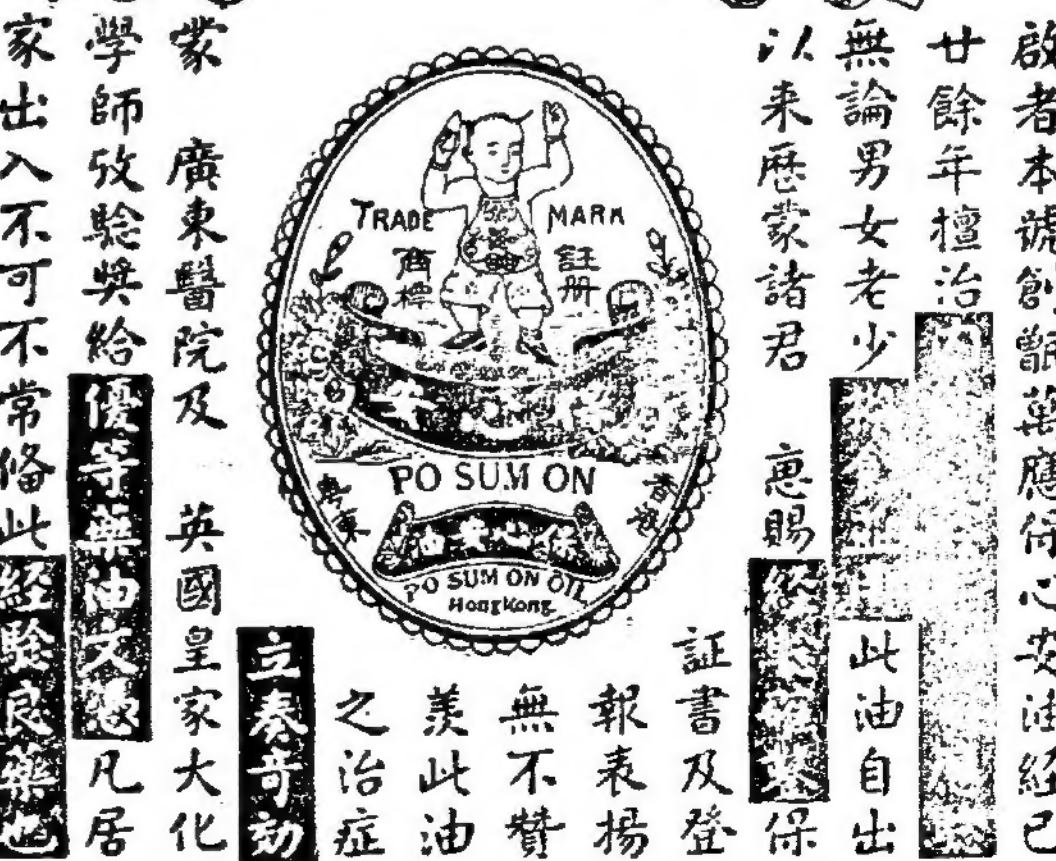 啟者本號創製萬應保心安油經已
廿餘年擅治
無論男女老少 此油自出
以来歷蒙諸君 惠賜 保
証書及登
報表揚
無不贊
羨此油
之治症
立奏奇効
TRADE MARK
商標 註册
PO SUM ON
香港
廣東
保心安油
PO SUM ON OIL
HongKong
蒙 廣東醫院及 英國皇家大化
學師攷驗獎給優等藥油文憑凡居
家出入不可不常俻此経驗良藥也